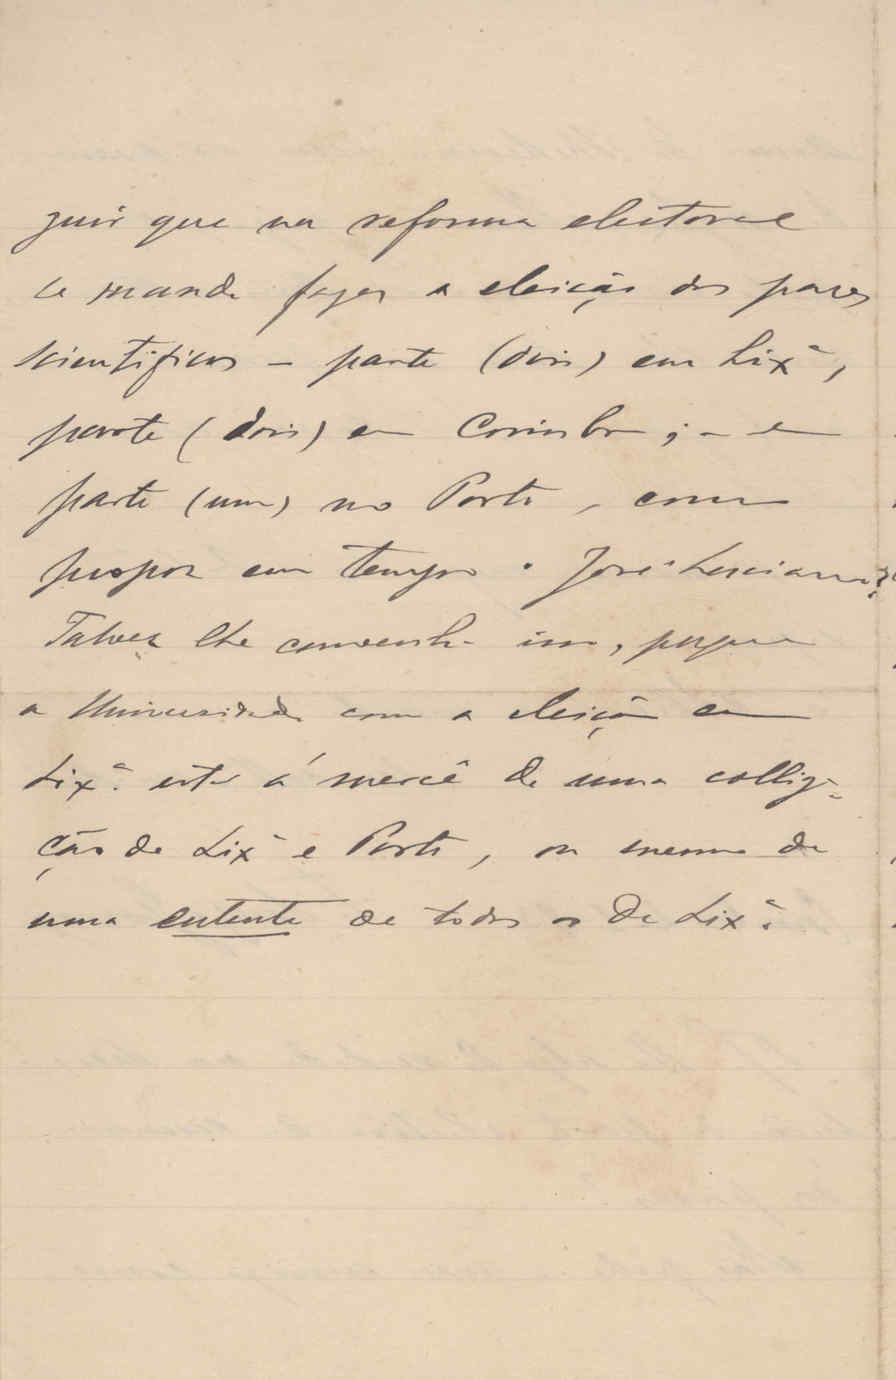 guir que na reforma eleitoral
se mande fazer a eleição dos pares
scientificos — parte (dois) em Lixª,
parte (dois) em Coimbra; — e
parte (um) no Porto, como
propoz em tempo o José Luciano?
Talvez lhe convenha isso, porque
a Universidade com a eleição em
Lixª. está á mercê de uma collig-
ção de Lixª e Porto, ou mesmo de
uma entente de todos os de Lixª.